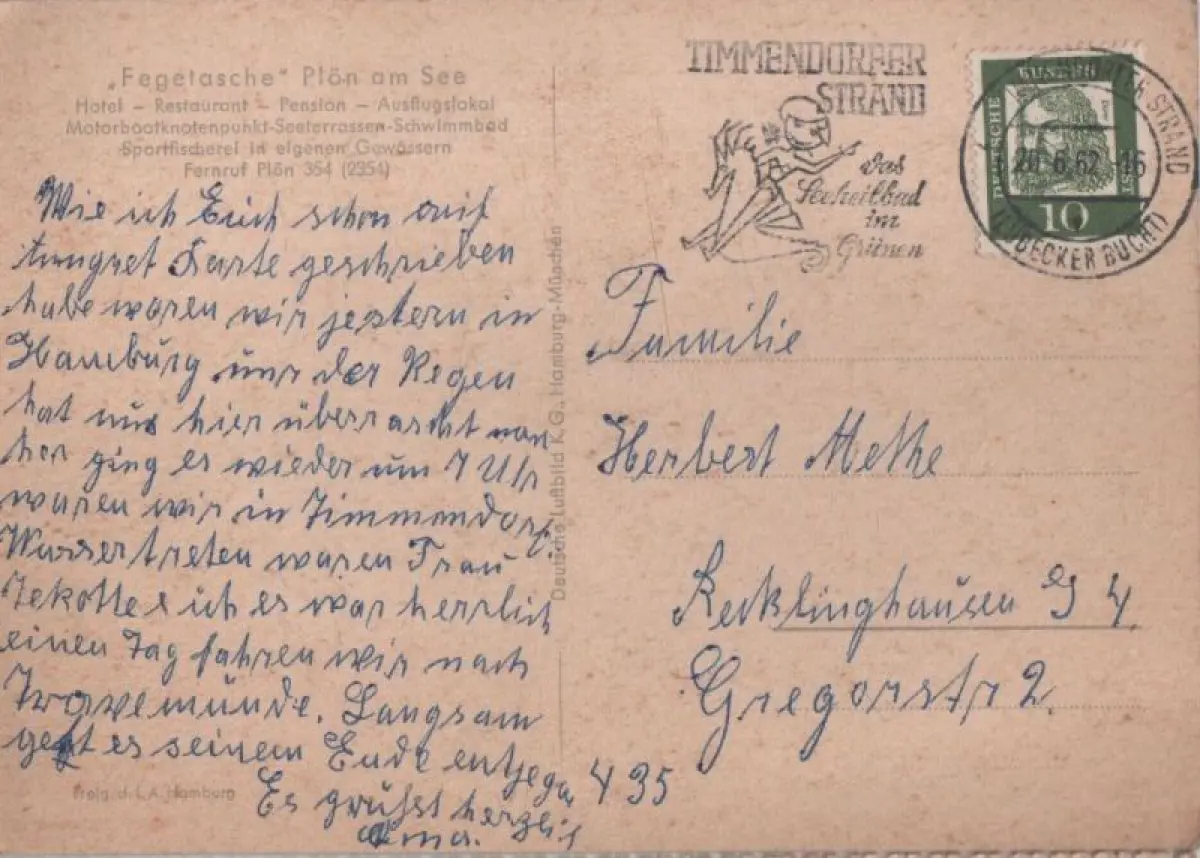 „Fegetasche" Plön am See
Hotel – Restaurant – Pension – Ausflugslokal
Motorbootknotenpunkt-Seeterrassen-Schwimmbad
Sportfischerei in eigenen Gewässern
Fernruf Plön 354 (2354)
Wie ich Euch schon auf
Karte geschrieben
habe waren wir jestern in
Hamburg unr der Regen
hat uns hier überrascht nach
her ging es wieder um 7 Uhr
waren wir in Timmendorf
Wassertreten waren Frau
Tekotte & ich es war herrlich
einen Tag fahren wir nach
Travemünde. Langsam
geht es seinem Ende entgegen
Es grüßt herzlich
Oma.
Freig. d. L.A. Hamburg
Deutsche Luftbild K.G., Hamburg-München
TIMMENDORFER
STRAND
das
Seeheilbad
im
Grünen
TIMMENDORFER STRAND
20.6.62-16
(LÜBECKER BUCHT)
DEUTSCHE
BUNDESPOST
10
Familie
Herbert Methe
Recklinghausen S 4
Gregorstr 2
435